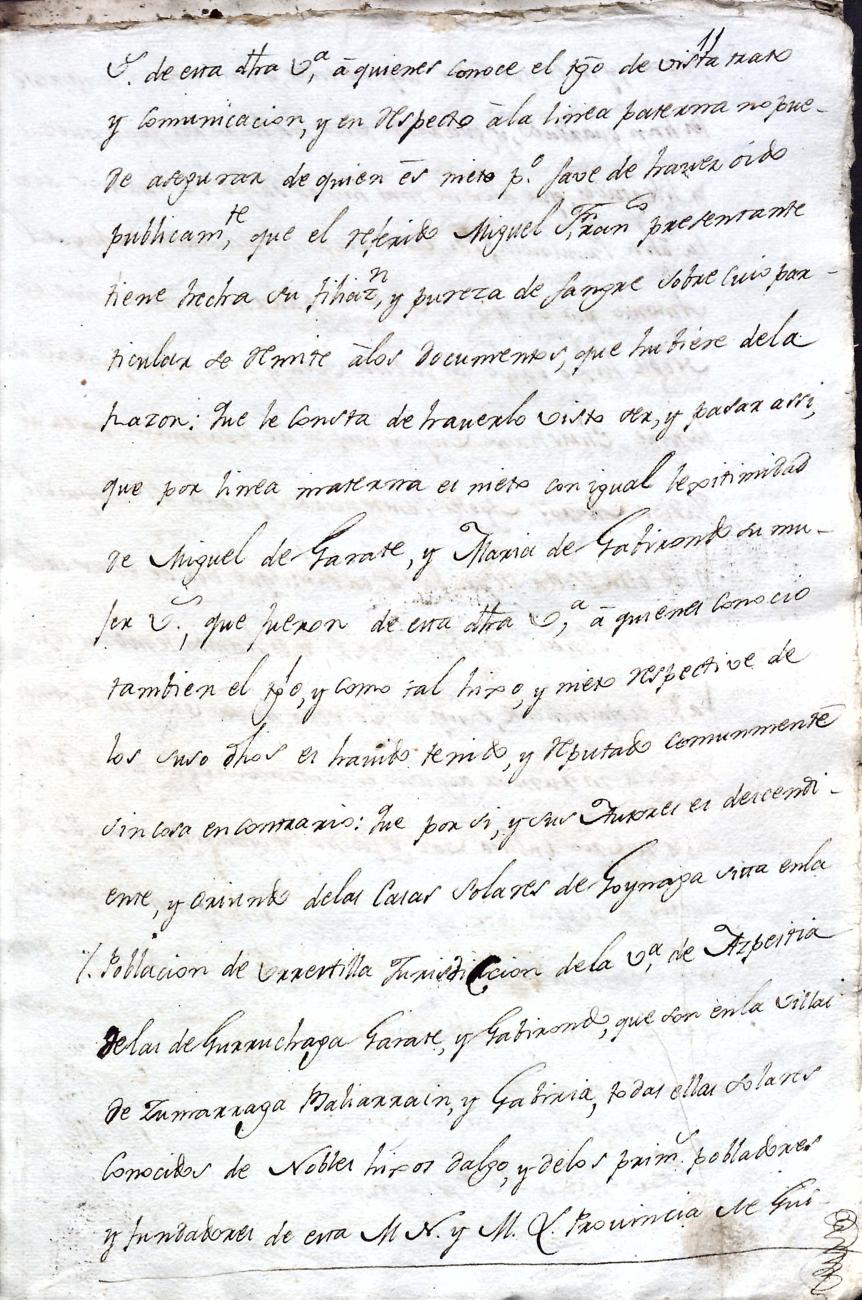 11
V.ˢ de esta dhã Vᵃ, â quienes conoce el tgõ de vista trato
y comunicacion, y en respecto âla linea paterna no pue-
de asegurar de quien ês nieto pº save de haver óido
publicamᵗᵉ, que el referido Miguel Franᶜᵒ presentante
tiene hecha su filiazⁿ, y pureza de sangre sobre cuio par-
ticular se remite âlos Documentos, que hubiere dela
razon: Que le consta de haverlo visto ser, y pasar assi,
que por linea materna es nieto con igual lexitimidad
de Miguel de Garate, y Maria de Gabirondo su mu-
jer V.ˢ, que fueron de esta dhã Vᵃ, â quienes conocio
tambien el tgõ, y como tal hixo, y nieto respective de
los suso dhõs es havido tenido, y reputado comunmente
sin cosa en contrario: Que por si, y sus Autores es descendi-
ente, y oriundo delas Casas Solares de Goynaga sitta enla
/. Poblacion de Urrestilla Jurisdiccion dela Vᵃ, de Azpeitia
delas de Gurruchaga Garate, y Gabirondo, que son enla Villas
de Zumarraga Baliarrain, y Gabiria, todas ellas solares
Conocidos de Nobles hixos dalgo, y delos primˢ pobladores
y fundadores de esta M. N. y M. L. Provincia de Gui-